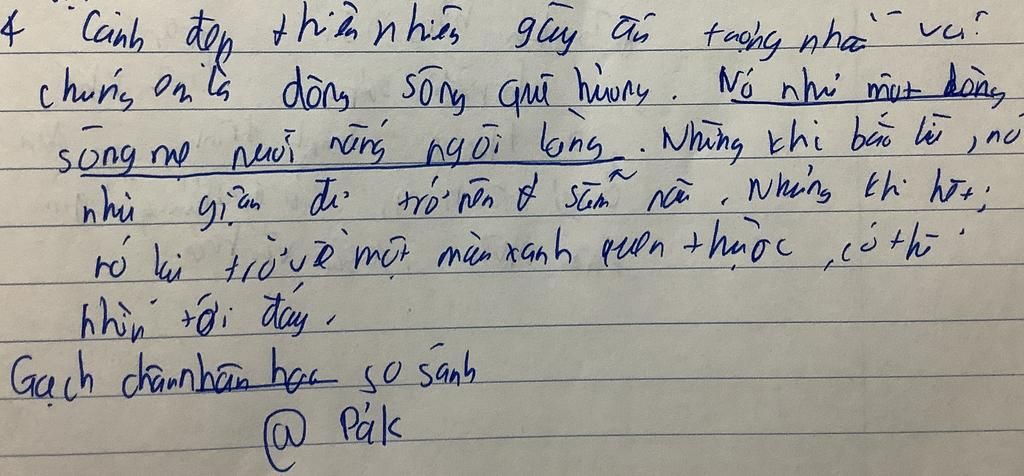 4 Cảnh đẹp thiên nhiên gây ấn tượng nhất với
chúng em là dòng sông quê hương. Nó như một dòng
sông mẹ nuôi nấng người làng. Những khi bão lũ, nó
như giận dữ trở nên sẫm nâu. Nhưng khi hết;
nó lại trở về một màu xanh quen thuộc, có thể
nhìn tới đáy.
Gạch chân nhân học so sánh
@ Pák